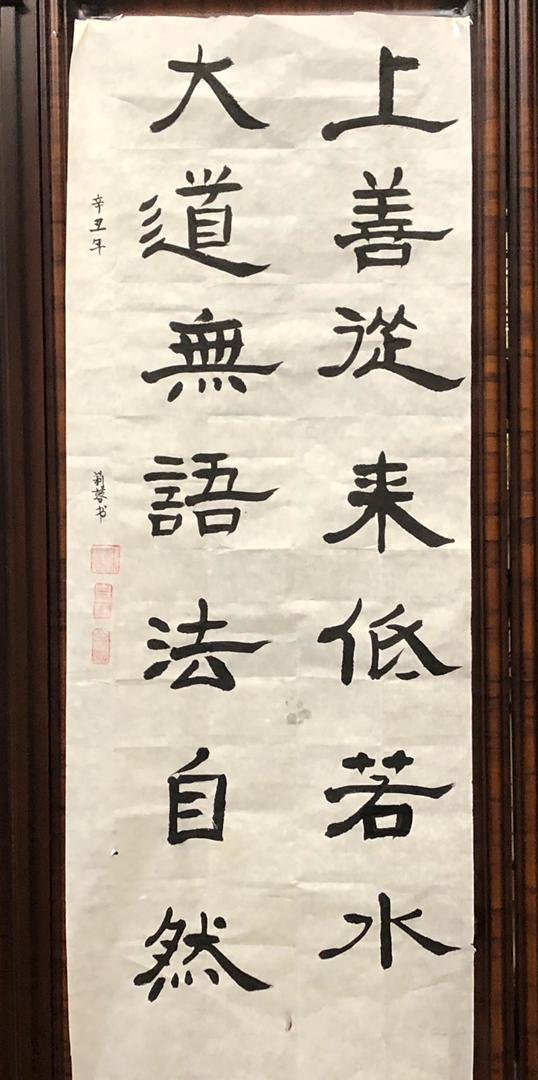 上善從来低若水
大道無語法自然
辛丑年
莉蓉书